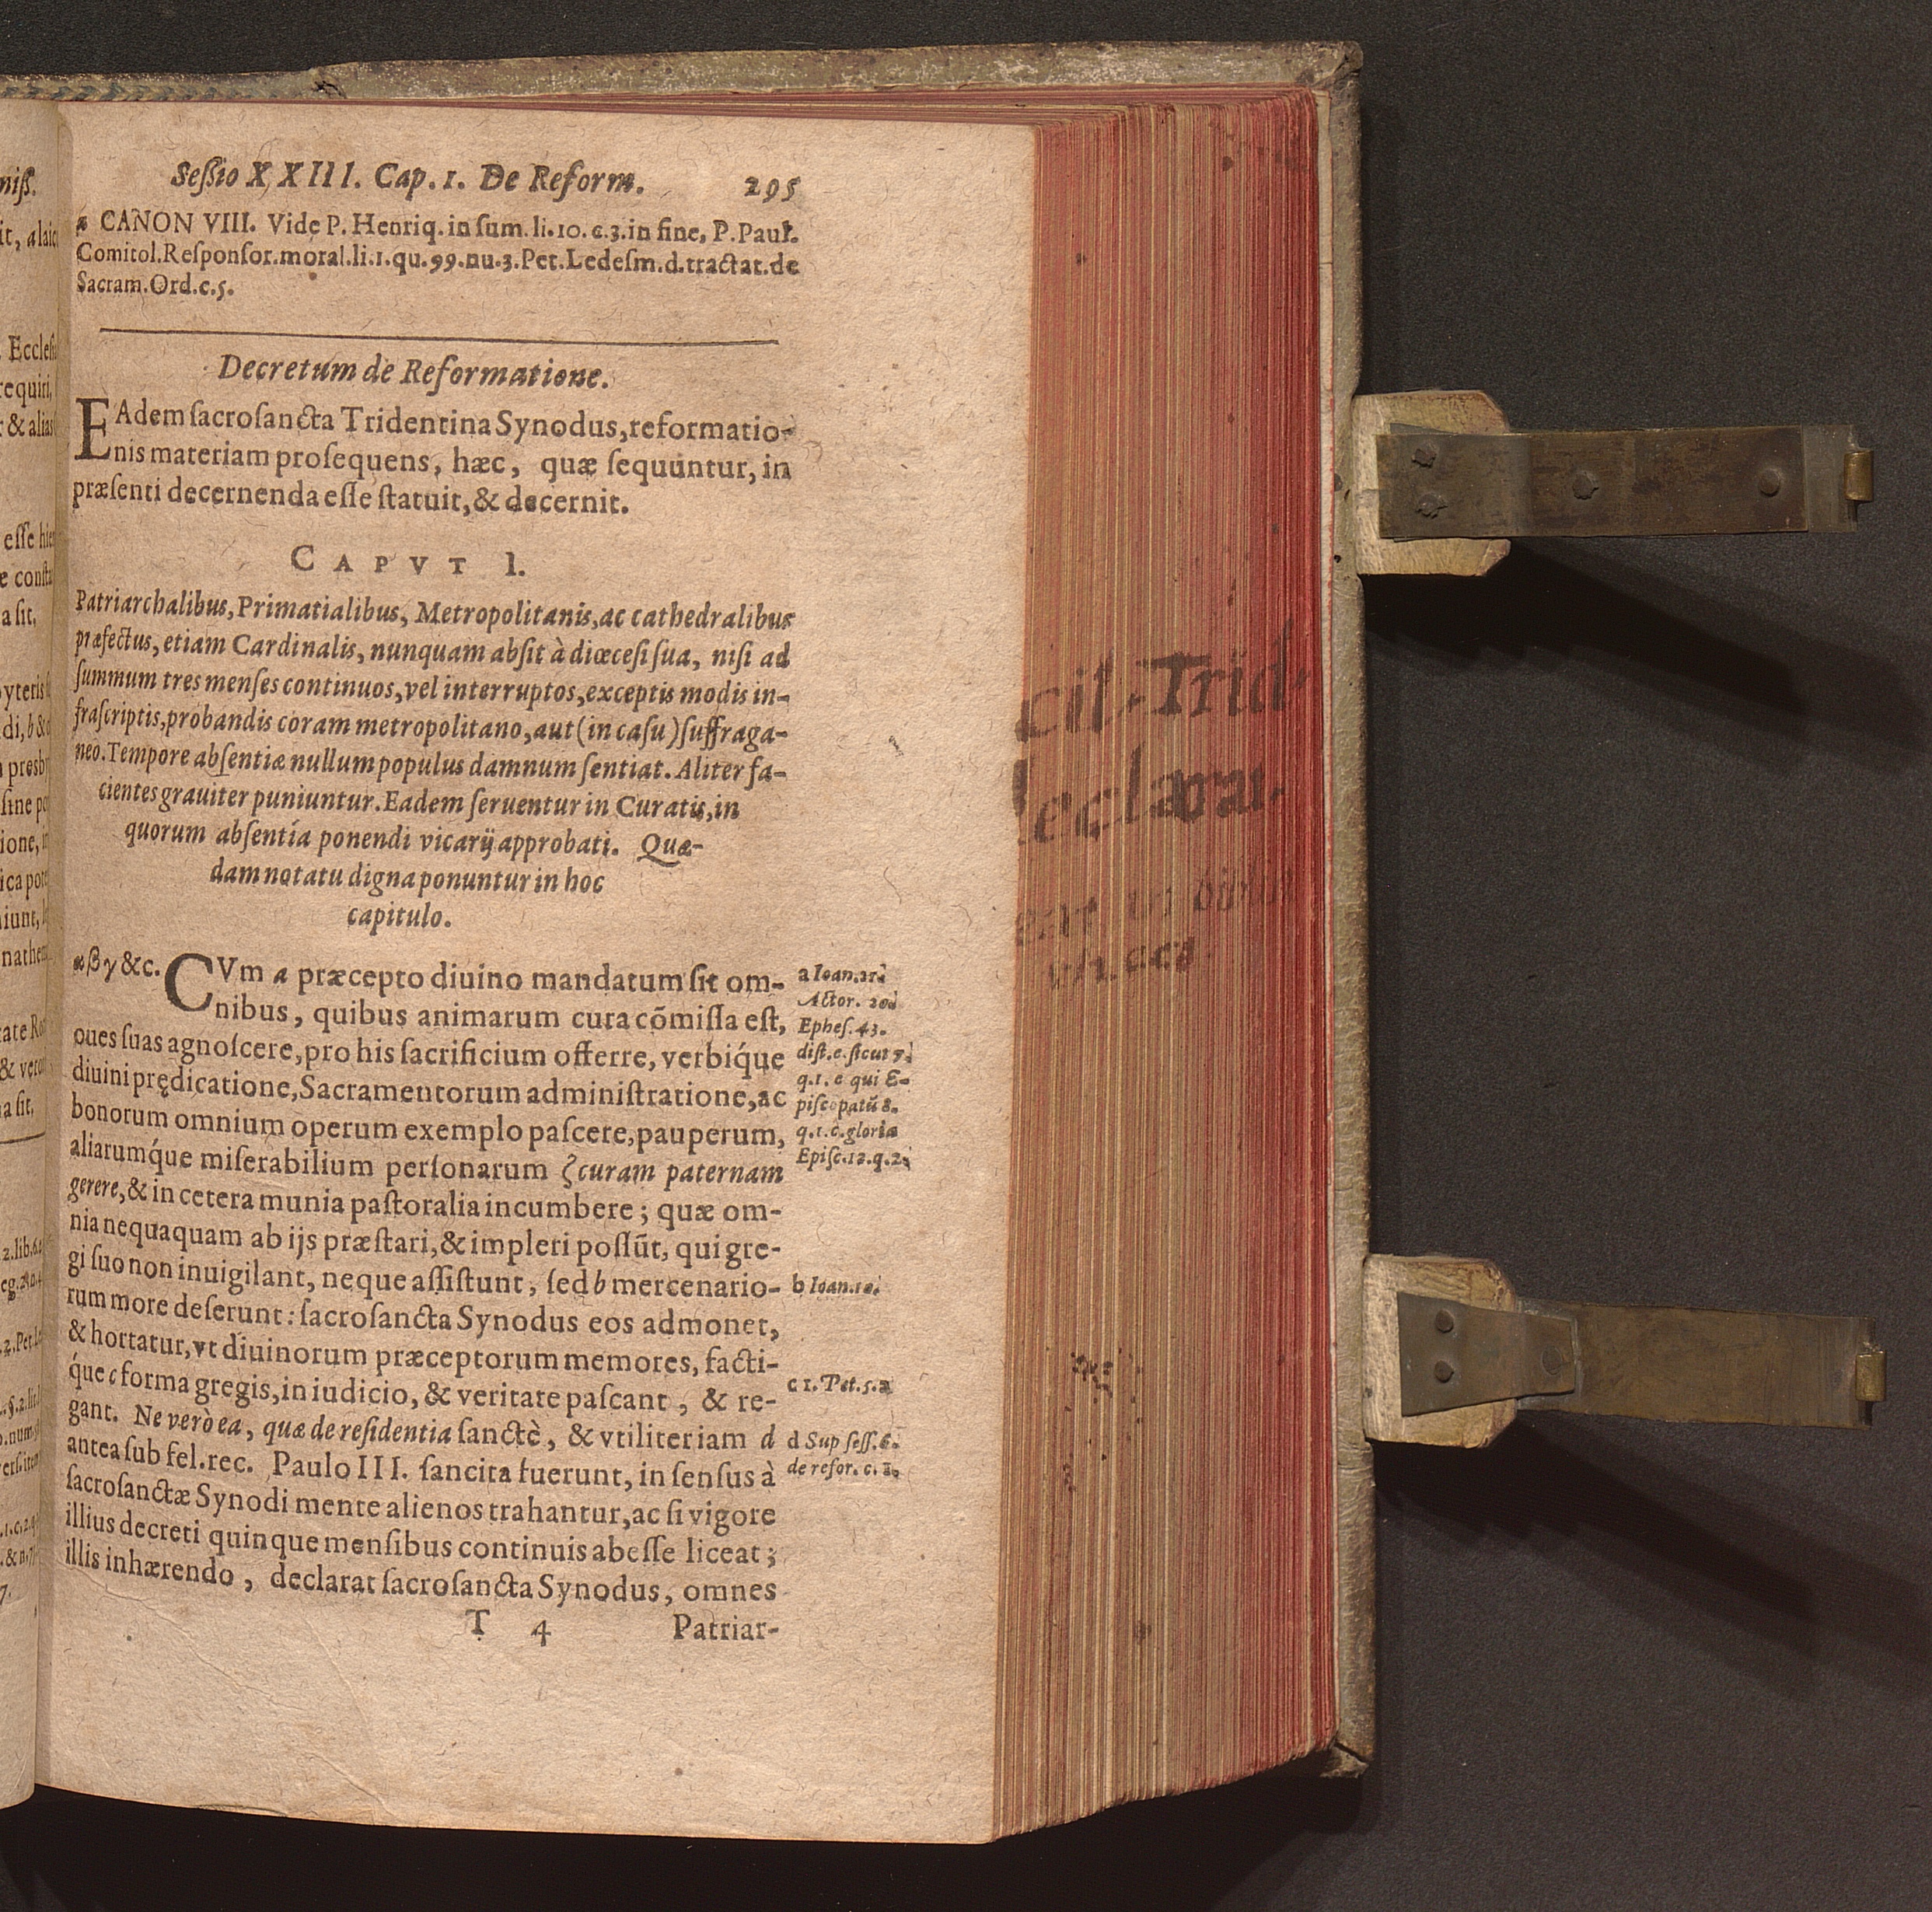 Seſſio XXIII. Cap. 1. De Reform. 295
a CANON VIII. Vide P. Henriq. in ſum. li. 10. c. 3. in fine, P. Paul.
Comitol. Reſponſor. moral. li. 1. qu. 99. nu. 3. Pet. Ledeſm. d. tractat. de
Sacram. Ord. c. 5.
Decretum de Reformatione.
EAdem ſacroſancta Tridentina Synodus, reformatio-
nis materiam proſequens, hæc, quæ ſequuntur, in
præſenti decernenda eſſe ſtatuit, & decernit.
CAPVT I.
Patriarchalibus, Primatialibus, Metropolitanis, ac cathedralibus
præfectus, etiam Cardinalis, nunquam abſit à diœceſi ſua, niſi ad
ſummum tres menſes continuos, vel interruptos, exceptis modis in-
fraſcriptis, probandis coram metropolitano, aut (in caſu) ſuffraga-
neo. Tempore abſentiæ nullum populus damnum ſentiat. Aliter fa-
cientes grauiter puniuntur. Eadem ſeruentur in Curatis, in
quorum abſentía ponendi vicarij approbati. Quæ-
dam notatu digna ponuntur in hoc
capitulo.
αβγ &c. CVm a præcepto diuino mandatum ſit om-
nibus, quibus animarum cura cõmiſſa eſt,
oues ſuas agnoſcere, pro his ſacrificium offerre, verbiq́ue
diuini prędicatione, Sacramentorum adminiſtratione, ac
bonorum omnium operum exemplo paſcere, pauperum,
aliarumq́ue miſerabilium perſonarum ζ curam paternam
gerere, & in cetera munia paſtoralia incumbere; quæ om-
nia nequaquam ab ijs præſtari, & impleri poſſũt, qui gre-
gi ſuo non inuigilant, neque aſſiſtunt, ſed b mercenario-
rum more deſerunt: ſacroſancta Synodus eos admonet,
& hortatur, vt diuinorum præceptorum memores, facti-
q́ue c forma gregis, in iudicio, & veritate paſcant, & re-
gant. Ne verò ea, quæ de reſidentia ſanctè, & vtiliter iam d
antea ſub fel. rec. Paulo III. ſancita fuerunt, in ſenſus à
ſacroſanctæ Synodi mente alienos trahantur, ac ſi vigore
illius decreti quinque menſibus continuis abeſſe liceat;
illis inhærendo, declarat ſacroſancta Synodus, omnes
T 4 Patriar-
a Ioan. 21.
Actor. 20.
Epheſ. 43.
diſt. c. ſicut 7.
q. 1. c qui E-
piſcopatũ 8.
q. 1. c. gloria
Epiſc. 12. q. 2.
b Ioan. 10.
c 1. Pet. 5. a
d Sup ſeſſ. 6.
de refor. c. 1.
cil. Trid.
declarat.